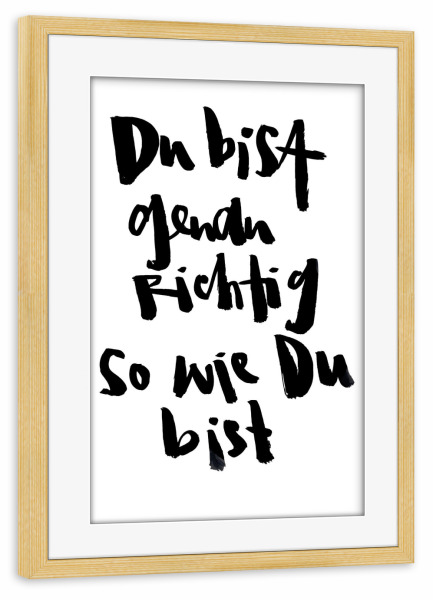 Du bist
genau
richtig
so wie Du
bist